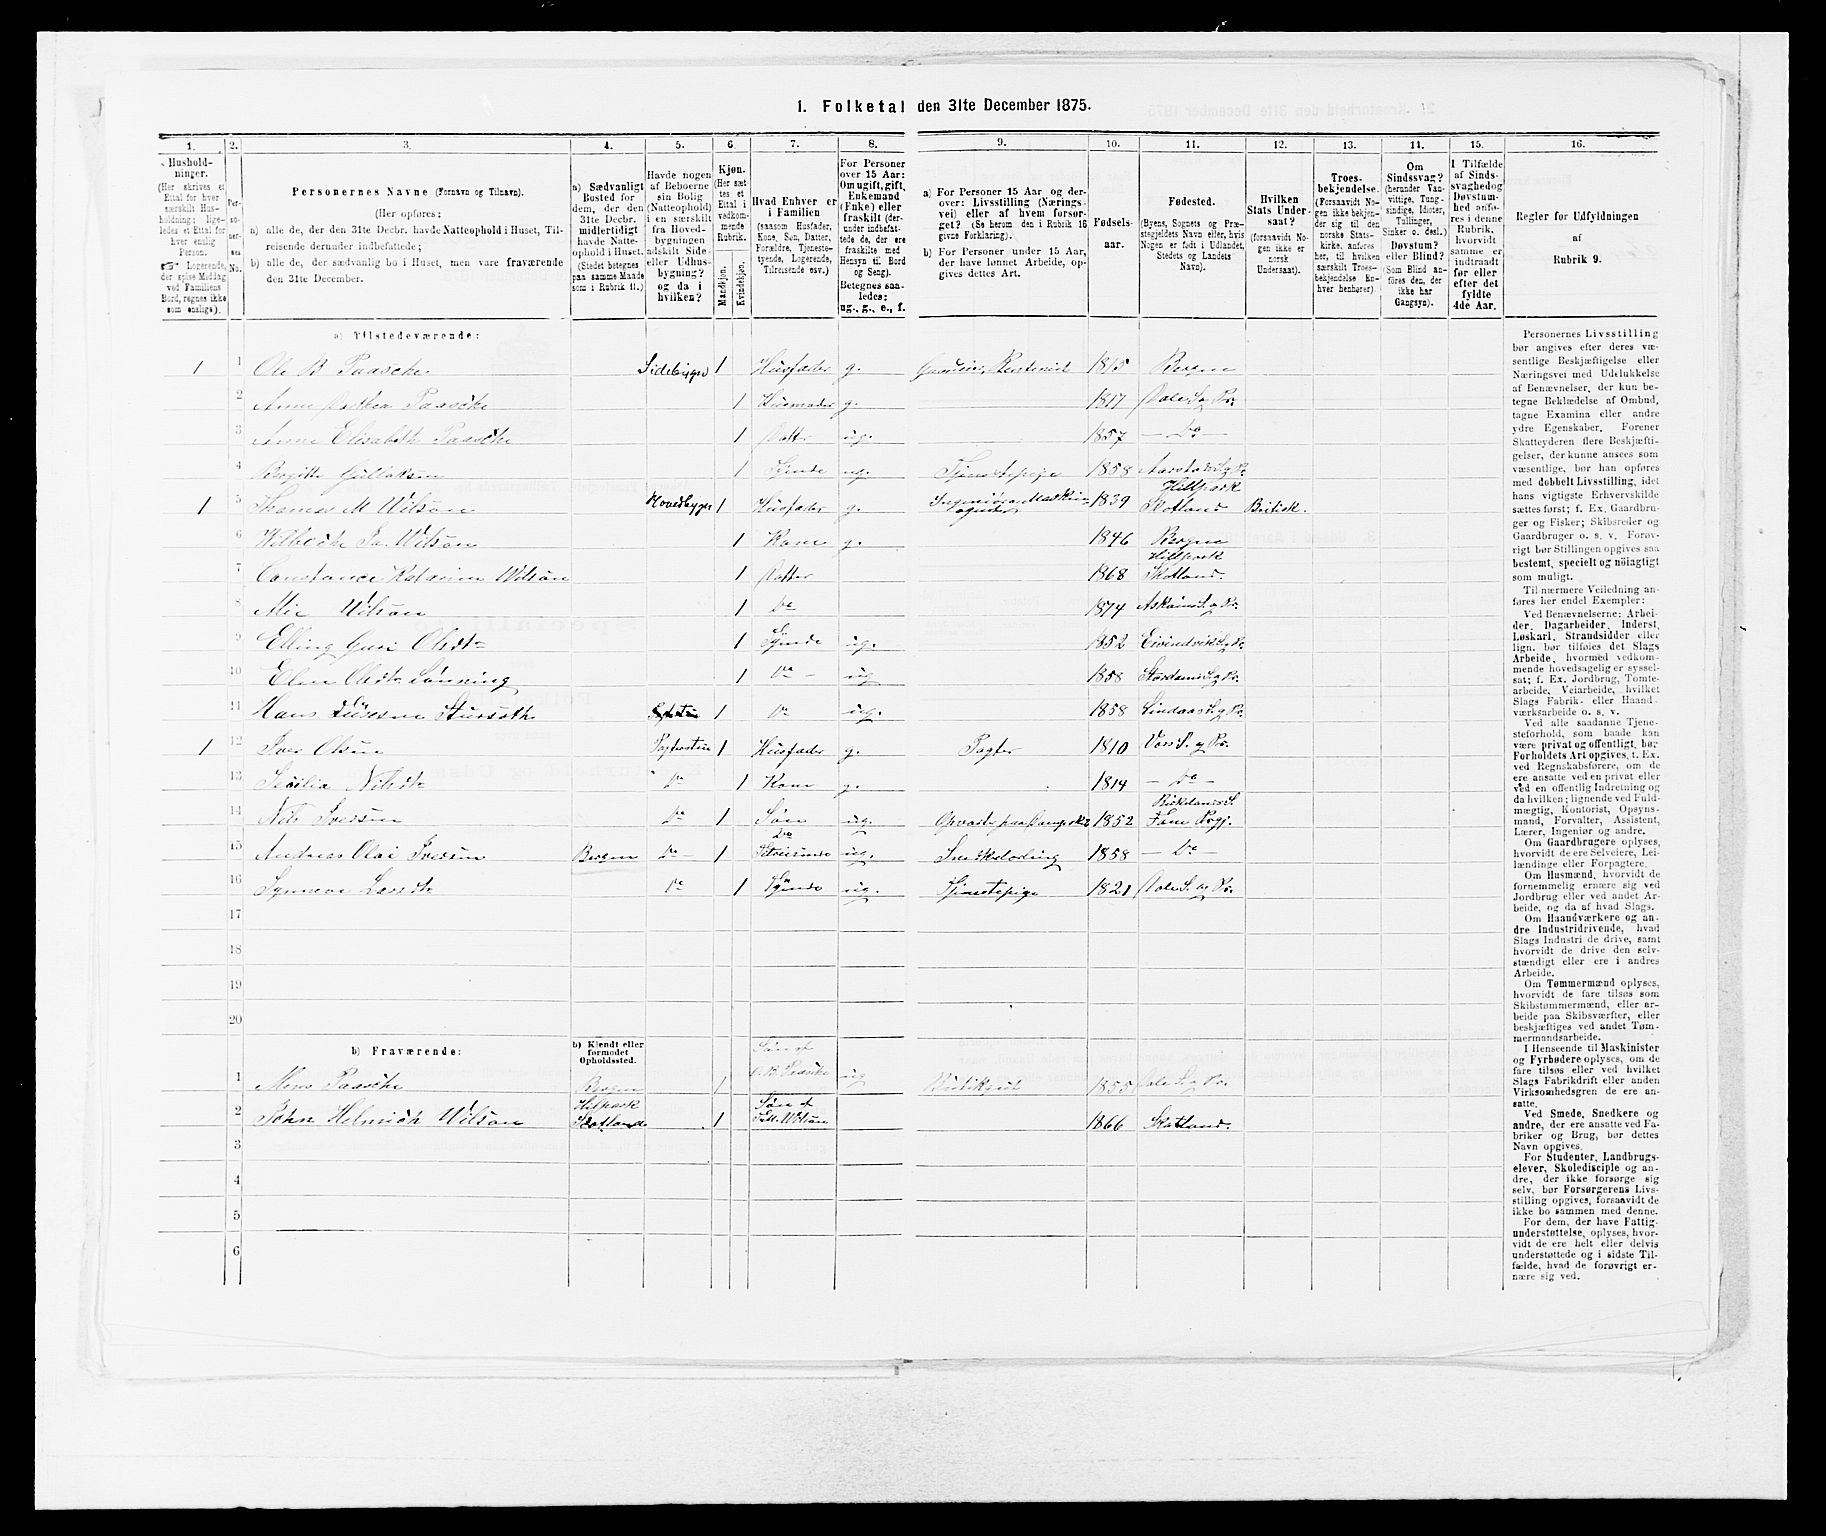 1. Folketal den 31te December 1875.
1. 2. 3. 4. 5. 6. 7. 8. 9. 10. 11. 12. 13. 14. 15. 16.
Husholdninger. (Her skrives et Ettal for hver særskilt Husholdning; ligeledes et Ettal for hver enslig Person. Logerende, der spise Middag ved Familiens Bord, regnes ikke som enslige).
Personernes No.
Personernes Navne (Fornavn og Tilnavn).
(Her opføres:
a) alle de, der den 31te Decbr. havde Natteophold i Huset, Tilreisende derunder indbefattede;
b) alle de, der sædvanlig bo i Huset, men vare fraværende den 31te December.
a) Sædvanligt Bosted for dem, der den 31te Decbr. midlertidigt havde Natteophold i Huset. (Stedet betegnes paa samme Maade som i Rubrik 11.)
Havde nogen af Beboerne sin Bolig (Natteophold) i en særskilt fra Hovedbygningen adskilt Side- eller Udhusbygning? og da i hvilken?
Kjøn. (Her sættes et Ettal i vedkommende Rubrik.
Mandkjøn. Kvindekjøn.
Hvad Enhver er i Familien (saasom Husfader, Kone, Søn, Datter, Forældre, Tjenestetyende, Logerende, Tilreisende osv.)
For Personer over 15 Aar: Om ugift, gift, Enkemand (Enke) eller fraskilt (derunder indbefattede de, der ere fraskilte med Hensyn til Bord og Seng). Betegnes saaledes: ug., g., e., f.
a) For Personer 15 Aar og derover: Livsstilling (Næringsvei) eller af hvem forsørget? (Se herom den i Rubrik 16 givne Forklaring).
b) For Personer under 15 Aar, der have lønnet Arbeide, opgives dettes Art.
Fødselsaar.
Fødested. (Byens, Sognets og Præstegjeldets Navn eller, hvis Nogen er født i Udlandet, Stedets og Landets Navn).
Hvilken Stats Undersaat? (forsaavidt Nogen ikke er norsk Undersaat).
Troesbekjendelse. (Forsaavidt Nogen ikke bekjender sig til den norske Statskirke, anføres her, til hvilken særskilt Troesbekjendelse Enhver henhører)
Om Sindssvag? (herunder Vanvittige, Tungsindige, Idioter, Tullinger, Sinker o. desl.) Døvstum? eller Blind? (Som Blind anføres den, der ikke har Gangsyn).
I Tilfælde af Sindssvaghed og Døvstumhed anføres i denne Rubrik, hvorvidt samme er indtraadt før eller efter det fyldte 4de Aar.
Regler for Udfyldningen af Rubrik 9.
a) Tilstedeværende:
1 1 Ole B Paasche Sidebygn 1 Husfader g. 1815 Bergen
2 Anne Paasche 1 Husmoder g. 1817 Dale S. og Pr.
3 Anne Elisabeth Paasche 1 Datter ug. 1857 — Do —
4 Bergitte Gullaksen 1 Tyende ug. Tjenestepige 1858
1 5 Thomas M Wilson Hovedbygn 1 Husfader g. 1839 Skotland Britisk.
6 Wilson 1 Kone g. 1846 Bergen
7 Constance Katarine Wilson 1 Datter 1868 Skotland.
8 Wilson 1 Do 1874 Askøens S. og Pr.
9 Olsdtr 1 Tyende ug. 1852 Eivindvik S. og Pr.
10 Olsdtr 1 Do — ug 1858 S. og Pr.
11 Hans 1 Do ug. 1858 Lindaas S. og Pr.
1 12 Iver Olsen 1 Husfader g. 1810 Voss S. og Pr.
13 Nilsdtr Do 1 Kone g. 1814 — Do —
14 Nils Iversen Do 1 Søn ug. 1852
15 Andreas Olai Iversen Bergen Do — 1 Do ug. 1858 — Do —
16 Do 1 Tyende ug. Tjenestepige 1821 Dale S. og Pr.
17
18
19
20
b) Fraværende:
b) Kjendt eller formodet Opholdssted.
1 Mens Paasche Bergen 1 Søn af O. B. Paasche ug 1855 Dale S. og Pr.
2 John Helmich Wilson Skotland 1 Søn af Wilson 1866 Skotland.
3
4
5
6
Personernes Livsstilling bør angives efter deres væsentlige Beskjæftigelse eller Næringsvei med Udelukkelse af Benævnelser, der kun betegne Beklædelse af Ombud, tagne Examina eller andre ydre Egenskaber. Forener Skatteyderen flere Beskjæftigelser, der kunne ansees som væsentlige, bør han opføres med dobbelt Livsstilling, idet hans vigtigste Erhvervskilde sættes først; f. Ex. Gaardbruger og Fisker; Skibsreder og Gaardbruger o. s. v. Forøvrigt bør Stillingen opgives saa bestemt, specielt og nöiagtigt som muligt.
Til nærmere Veiledning anføres her endel Exempler:
Ved Benævnelserne: Arbeider, Dagarbeider, Inderst, Løskarl, Strandsidder eller lign. bør tilføies det Slags Arbeide, hvormed vedkommende hovedsagelig er sysselsat; f. Ex. Jordbrug, Tomtearbeide, Veiarbeide, hvilket Slags Fabrik- eller Haandværksarbeide o. s. v.
Ved alle saadanne Tjenesteforhold, som baade kan være privat og offentligt, bør Forholdets Art opgives, t. Ex. ved Regnskabsførere, om de ere ansatte ved en privat eller ved en offentlig Indretning og da hvilken; lignende ved Fuldmægtig, Kontorist, Opsynsmand, Forvalter, Assistent, Lærer, Ingeniør og andre.
Om Gaardbrugere oplyses, hvorvidt de ere Selveiere, Leilændinge eller Forpagtere.
Om Husmænd, hvorvidt de fornemmelig ernære sig ved Jordbrug eller ved andet Arbeide, og da af hvad Slags.
Om Haandværkere og andre Industridrivende, hvad Slags Industri de drive, samt hvorvidt de drive den selvstændigt eller ere i andres Arbeide.
Om Tømmermænd oplyses, hvorvidt de fare tilsøs som Skibstømmermænd, eller arbeide paa Skibsværfter, eller beskjæftiges ved andet Tømmermandsarbeide.
I Henseende til Maskinister og Fyrbødere oplyses, om de fare tilsøs eller ved hvilket Slags Fabrikdrift eller anden Virksomhedsgren de ere ansatte.
Ved Smede, Snedkere og andre, der ere ansatte ved Fabriker og Brug, bør dettes Navn opgives.
For Studenter, Landbrugselever, Skoledisciple og andre, der ikke forsørge sig selv, bør Forsørgerens Livsstilling opgives, forsaavidt de ikke bo sammen med denne.
For dem, der have Fattigunderstøttelse, oplyses, hvorvidt de ere helt eller delvis understøttede og i sidste Tilfælde, hvad de forøvrigt ernære sig ved.